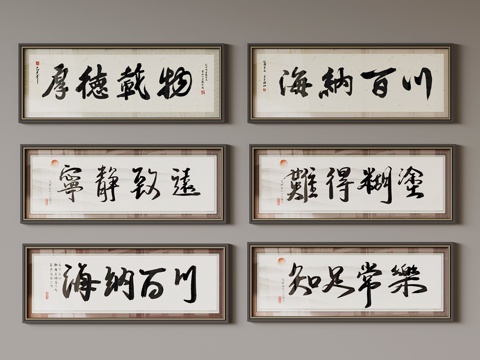 厚德載物
海納百川
寧靜致遠
難得糊塗
海纳百川
知足常樂